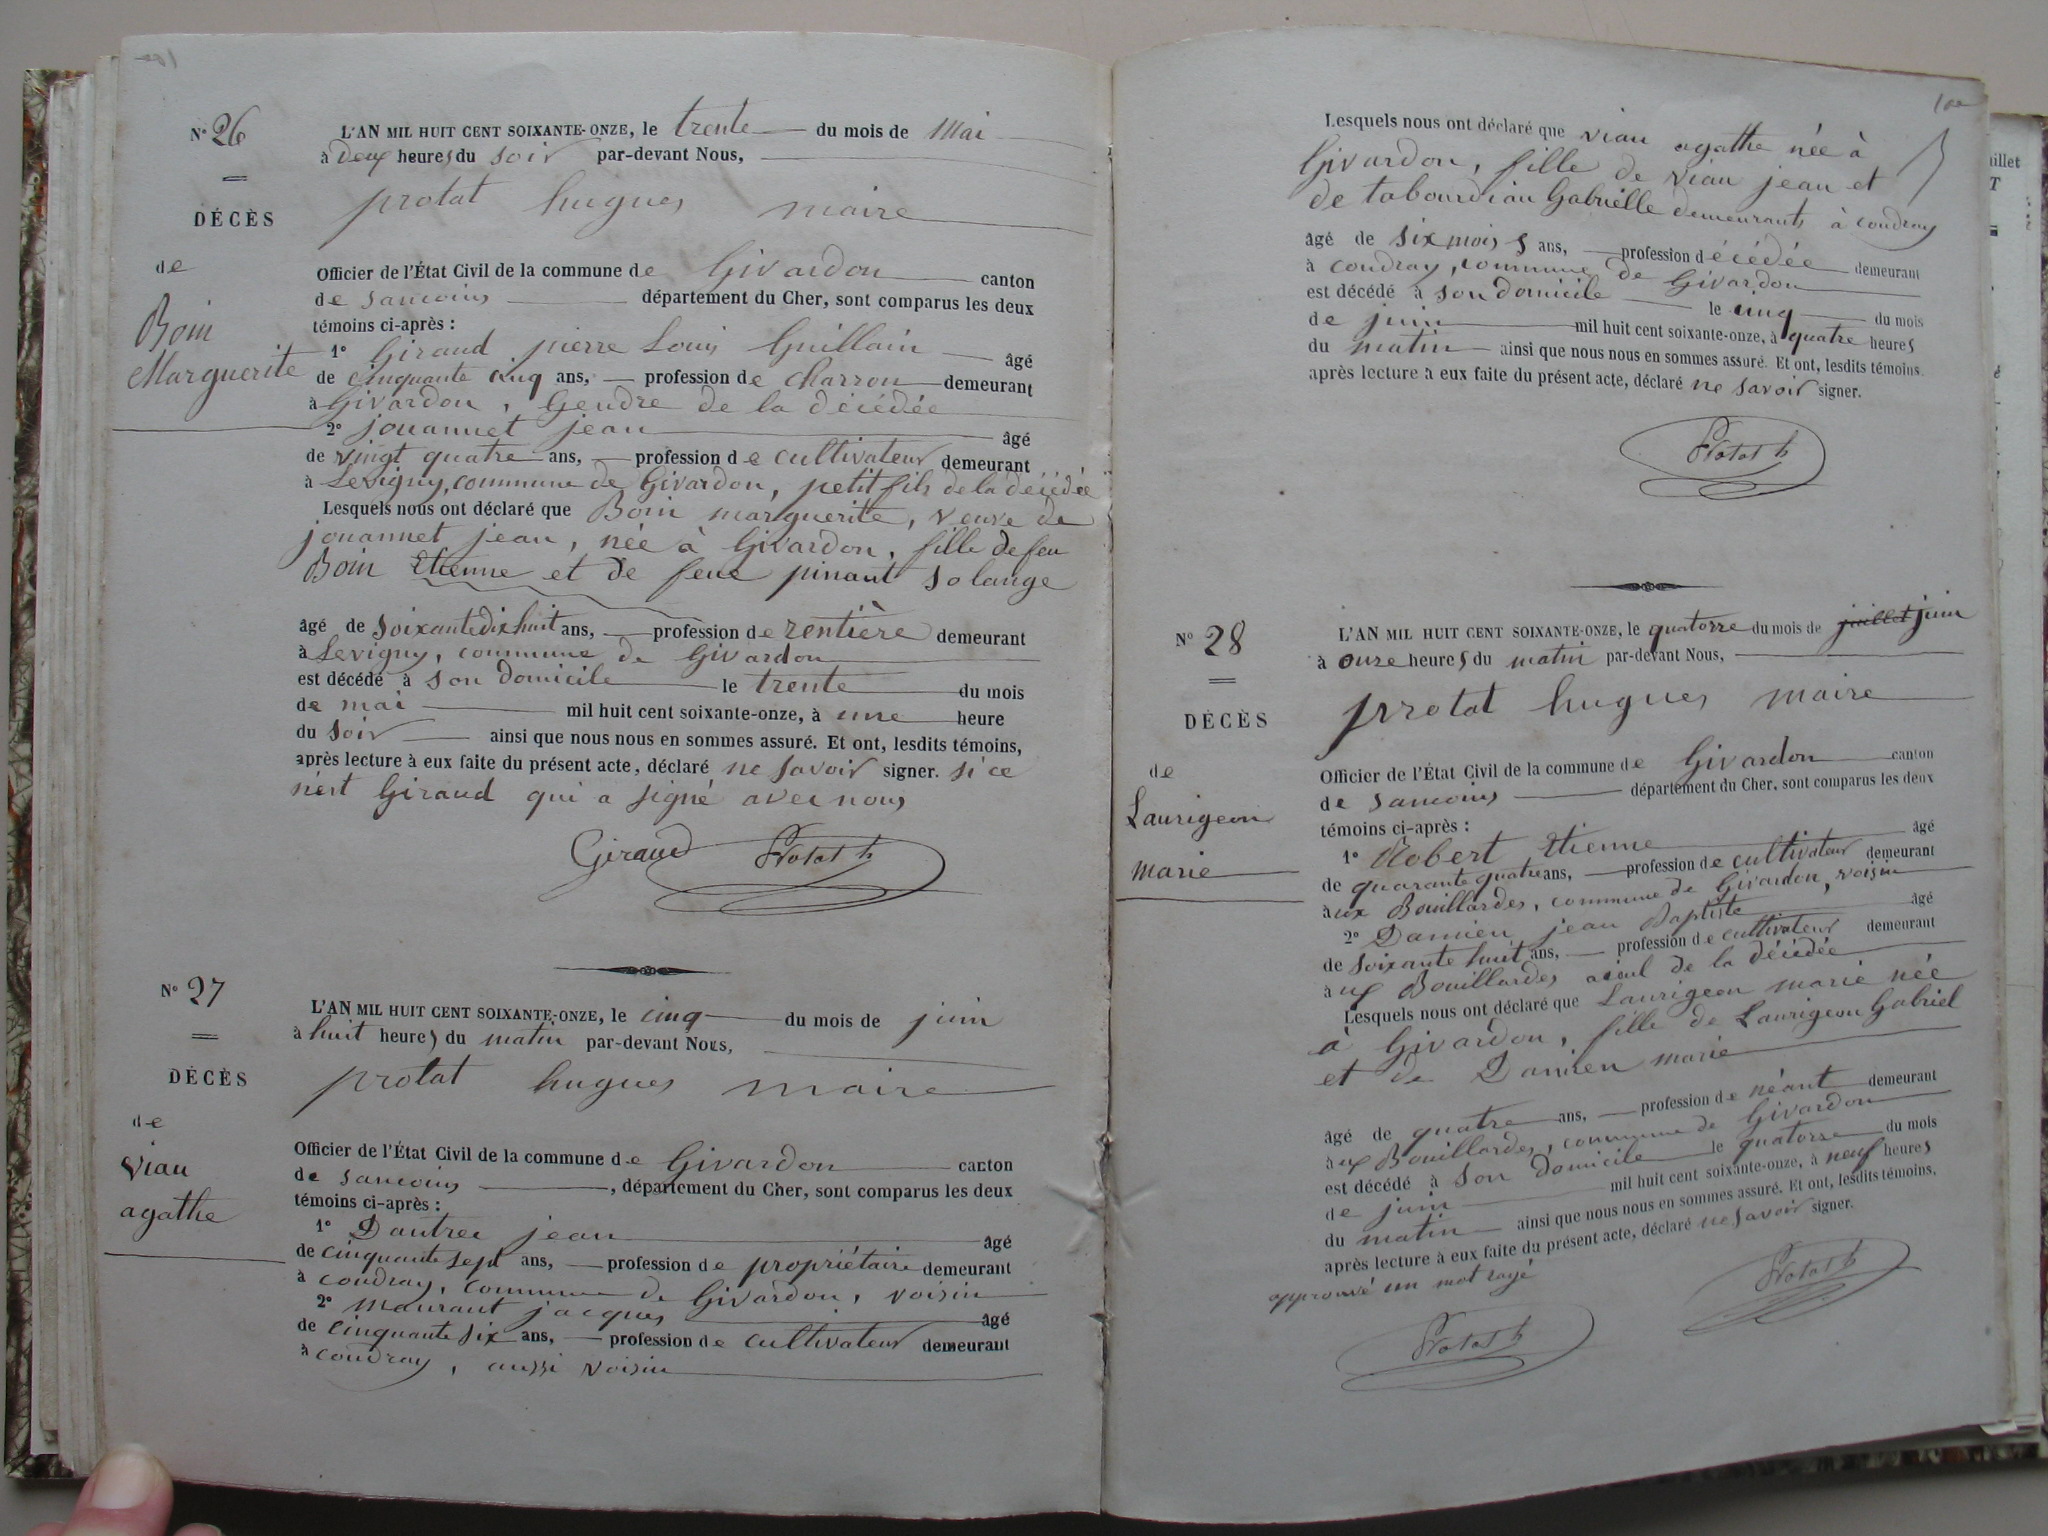 N° 26
DÉCÈS
de
Boin
Marguerite
L'AN MIL HUIT CENT SOIXANTE-ONZE, le trente du mois de Mai
à deux heures du soir par-devant Nous,
protat hugues maire
Officier de l'État Civil de la commune de Givardon canton
de Sancoins département du Cher, sont comparus les deux
témoins ci-après :
1° Giraud pierre Louis Guillain âgé
de cinquante cinq ans, profession de charron demeurant
à Givardon, Gendre de la décédée
2° jouannet jean âgé
de vingt quatre ans, profession de cultivateur demeurant
à Levigny, commune de Givardon, petit fils de la décédée
Lesquels nous ont déclaré que Boin marguerite, veuve de
jouannet jean, née à Givardon, fille de feu
Boin Etienne et de feue pinant solange
âgé de soixante dix huit ans, profession de rentière demeurant
à Levigny, commune de Givardon
est décédé à son domicile le trente du mois
de mai mil huit cent soixante-onze, à une heure
du soir ainsi que nous nous en sommes assuré. Et ont, lesdits témoins,
après lecture à eux faite du présent acte, déclaré ne savoir signer. si ce
n'est Giraud qui a signé avec nous
Giraud Protat h
N° 27
DÉCÈS
de
viau
agathe
L'AN MIL HUIT CENT SOIXANTE-ONZE, le cinq du mois de juin
à huit heures du matin par-devant Nous,
protat hugues maire
Officier de l'État Civil de la commune de Givardon canton
de Sancoins, département du Cher, sont comparus les deux
témoins ci-après :
1° Dautrec jean âgé
de cinquante sept ans, profession de propriétaire demeurant
à coudray, commune de Givardon, voisin
2° maurant jacques âgé
de cinquante six ans, profession de cultivateur demeurant
à coudray, aussi voisin
Lesquels nous ont déclaré que viau agathe née à
Givardon, fille de viau jean et
de tabourdiau Gabrielle demeurants à coudray
âgé de six mois ans, profession décédée demeurant
à coudray, commune de Givardon
est décédé à son domicile le cinq du mois
de juin mil huit cent soixante-onze, à quatre heures
du matin ainsi que nous nous en sommes assuré. Et ont, lesdits témoins,
après lecture à eux faite du présent acte, déclaré ne savoir signer.
Protat h
N° 28
DÉCÈS
de
Laurigeon
marie
L'AN MIL HUIT CENT SOIXANTE-ONZE, le quatorze du mois de juillet juin
à onze heures du matin par-devant Nous,
protat hugues maire
Officier de l'État Civil de la commune de Givardon canton
de Sancoins département du Cher, sont comparus les deux
témoins ci-après :
1° Robert Etienne âgé
de quarante quatre ans, profession de cultivateur demeurant
aux Bouillardes, commune de Givardon, voisin
2° Damien jean Baptiste âgé
de soixante huit ans, profession de cultivateur demeurant
aux Bouillardes aieul de la décédée
Lesquels nous ont déclaré que Laurigeon marie née
à Givardon, fille de Laurigeon Gabriel
et de Damien marie
âgé de quatre ans, profession de néant demeurant
aux Bouillardes, commune de Givardon
est décédé à son domicile le quatorze du mois
de juin mil huit cent soixante-onze, à neuf heures
du matin ainsi que nous nous en sommes assuré. Et ont, lesdits témoins,
après lecture à eux faite du présent acte, déclaré ne savoir signer.
approuvé un mot rayé
Protat h
Protat h